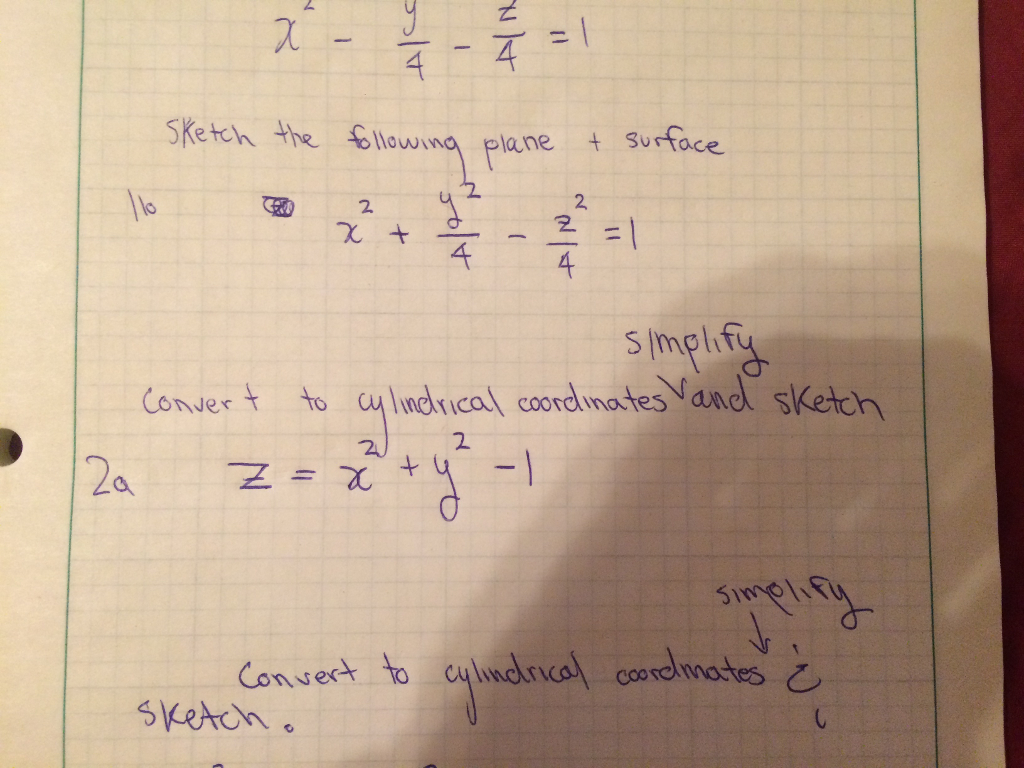 x² - y/4 - z/4 = 1
Sketch the following plane + surface
x² + y²/4 - z²/4 = 1
simplify
Convert to cylindrical coordinates and sketch
2a z = x² + y² - 1
simplify
Convert to cylindrical coordinates
sketch.